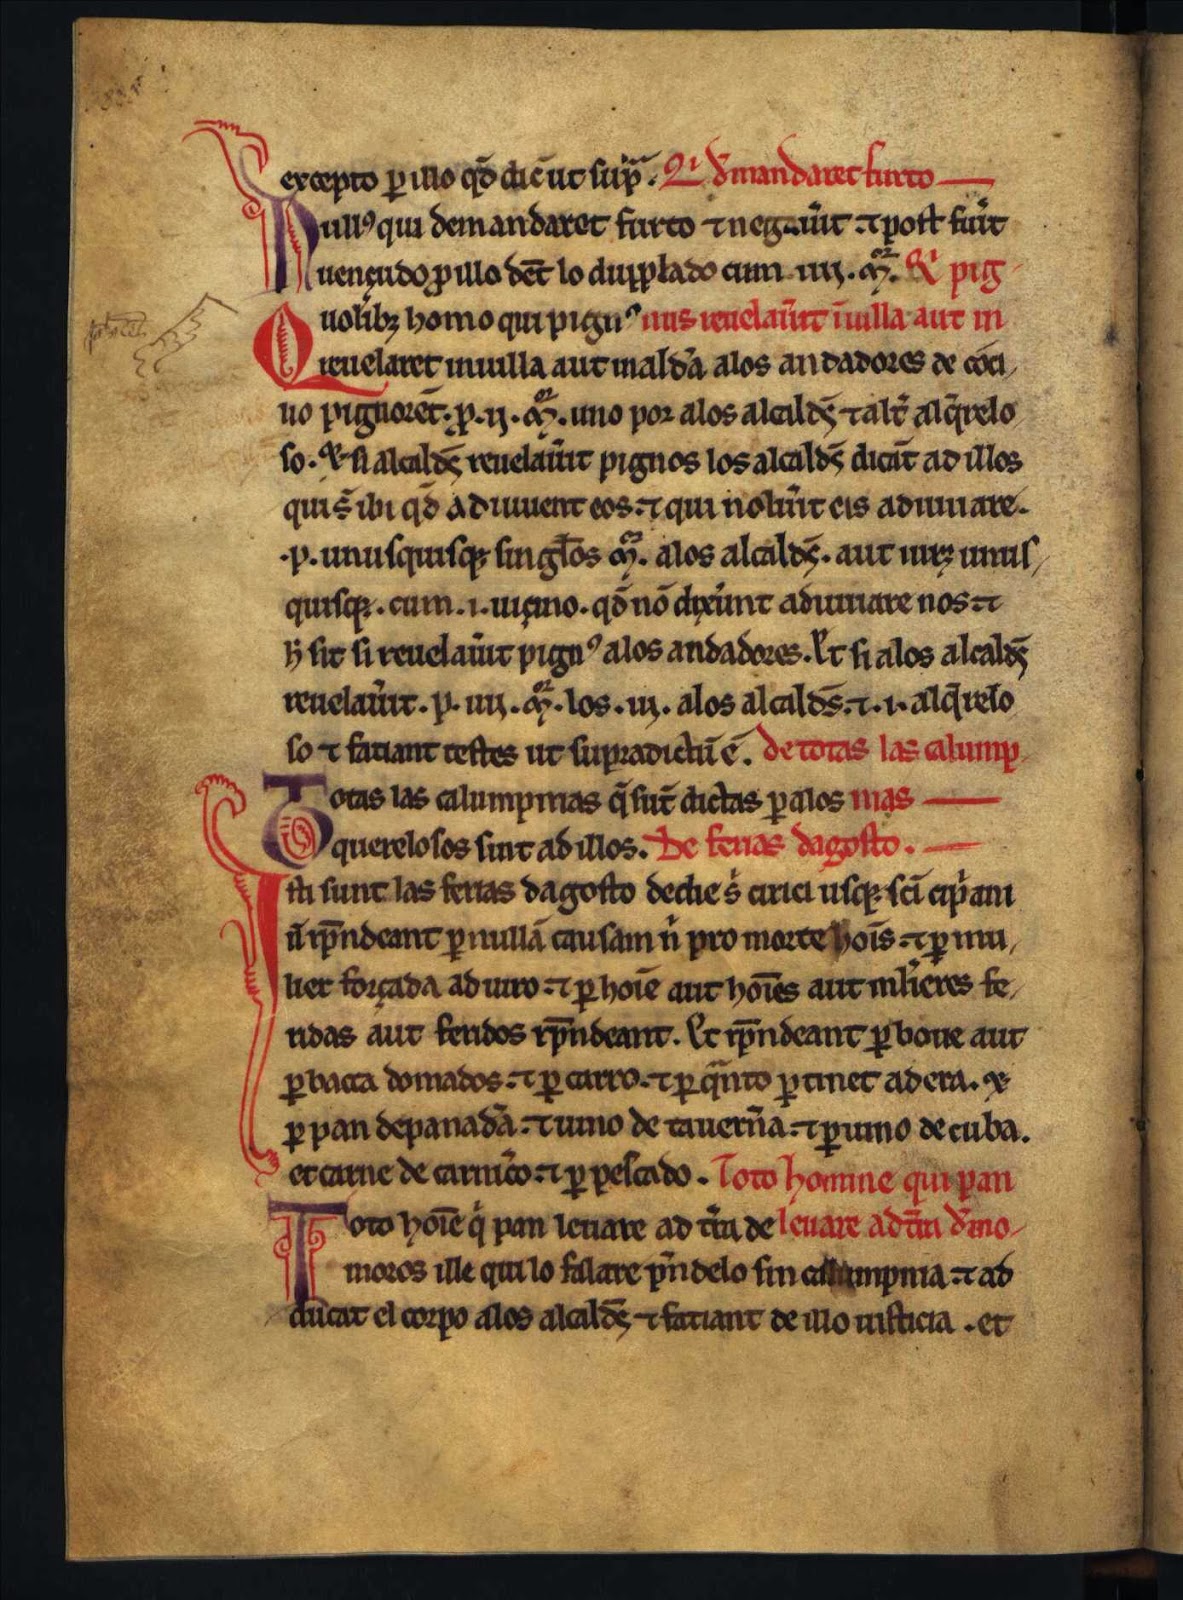 excepto ꝑ illo qd̄ dic̄ ut sup̄ᵃ. Qⁱ d̓mandaret furto
Null⁹ qui demandaret furto ⁊ negau̓it ⁊ post fu̓it
uençudo ꝓ illo det̄ lo dupplado cum iiij. mr̄. Qⁱ pig
Quolibꝫ homo qui pign⁹ nus reuelau̓it ī uilla aut in
reuelaret in uilla aut in ald̓a alos andadores de cōci
uo pignoret̄. p̄. ij. mr̄. uno por alos alcald̄s ⁊ alt̓ alq̄relo
so. Et si alcald̄s reuelau̓it pignos los alcald̄s dicāt ad illos
qui s̄t ibi qd̄ adiuuent eos ⁊ qui nolu̓it eis adiuuare.
.p. unusquisqꝫ singlos mr̄. alos alcald̄s. aut iurꝫ unus
quisqꝫ. cum .i. uiçino. qd̄ nō dix̓unt adiuuare nos ⁊
h̄ sit si reuelau̓it pign⁹ alos andadores. Et si alos alcald̄s
reuelau̓it. p. iiij. mr̄. los .iij. alos alcald̄s ⁊ .i. alq̄relo
so ⁊ fatiant testes ut supradictū ē. De totas las calump
Totas las calumpnias q̄ sūt dictas ꝑ alos nias
querelosos sint ad illos. De ferias dagosto.
Isti sunt las ferias dagosto de die s̄ cirici usqꝫ sc̄i cip̓ani
n̄ rp̄ndeant ꝑ nullā causam nⁱ pro morte hoīs ⁊ ꝑ mu
lier forçada ad uiro ⁊ ꝑ hoīe aut hoīes aut ml̓ieres fe
ridas aut feridos rp̄ndeant. Et rp̄ndeant ꝑ boue aut
ꝑ bacca domados ⁊ ꝑ carro ⁊ ꝑ qᵃnto ꝑtinet ad era. Et
ꝑ pan de panad̓a ⁊ uino de tauern̓a ⁊ ꝑ uino de cuba.
et carne de carnic̓o ⁊ ꝑ pescado. Toto homine qui pan
Toto hoīe qⁱ pan leuare ad t̓ra de leuare ad t̓ra d̓ mo
moros ille qui lo falare p̓ndelo sin calumpnia ⁊ ad
ducat el corpo alos alcald̄s ⁊ fatiant de illo iusticia . et